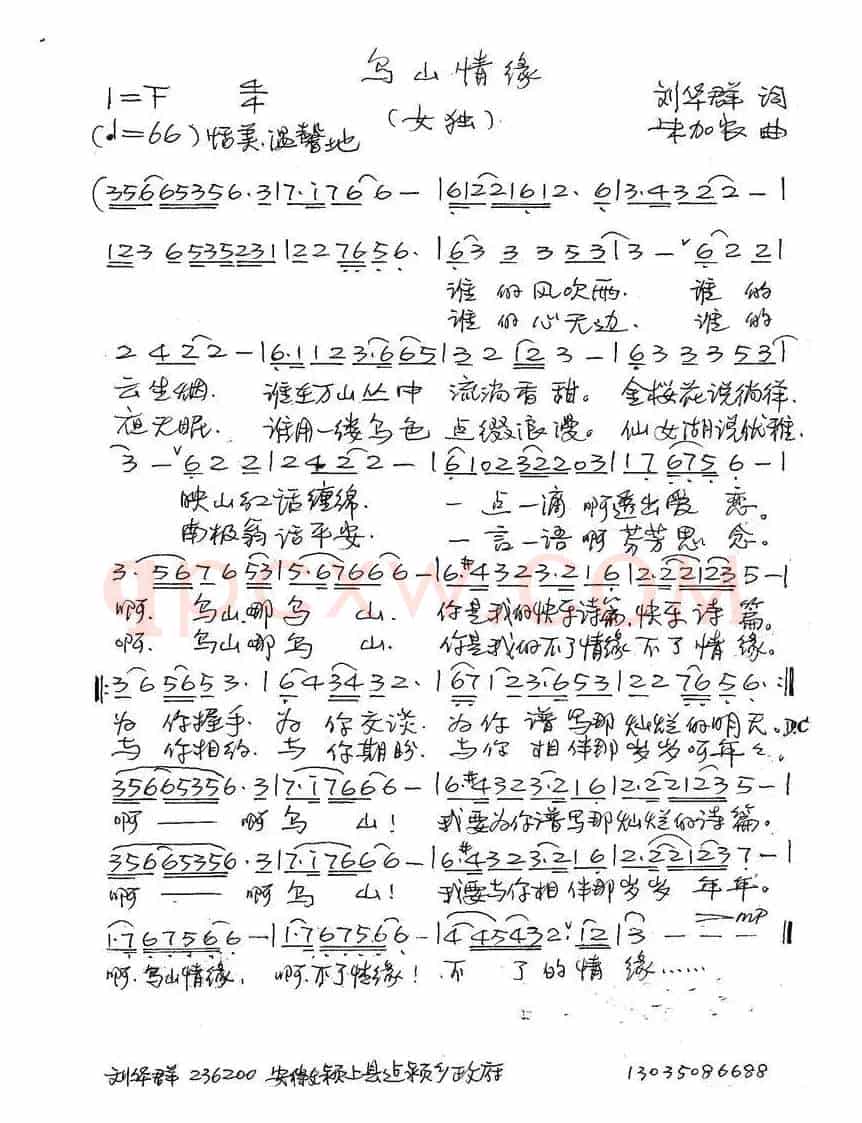 乌山情缘
1=F 4/4 刘华群 词
(♩=66) 恬美.温馨地 (女独) 朱加农 曲
(35665356·3|7·i766 — |61221612· 6|3·4322 — |
123 65352311|227656· |63 3 3 531 3 — ˅622|
谁 的风吹雨. 谁 的
谁 的心无边. 谁 的
2 422 — |6·1123·665|32 12 3 — |6333531
云生烟. 谁在万山丛中 流淌香甜。 金桜花说徜徉.
夜无眠. 谁用一缕乌色 点缀浪漫。 仙女湖说优雅.
3 — ˅622|2422 — |6102322203|176756 — |
映山红话缠绵. 一 点一滴 啊透出爱 恋。
南极翁话平安. 一 言一语 啊芬芳思 念。
3·5676531|5·67666 — |6·#4323·216|2·221235 — |
啊. 乌山哪乌 山. 你是我的快乐诗篇,快乐 诗 篇。
啊. 乌山哪乌 山. 你是我的不了情缘 不 了 情 缘。
‖:365653·|643432·|67123·653|227656·:‖
为 你握手. 为 你交谈. 为你 谱写那 灿烂的明天。D.C
与 你相约. 与 你期盼. 与你 相伴那 岁岁啊年年。
35665356·3|7·i7666 — |6·#4323·216|2·221235 — |
啊 —— 啊乌 山! 我要为你谱写那灿烂的诗 篇。
35665356·3|7·i7666 — |6·#4323·216|2·221237 — |
啊 —— 啊乌 山! 我要与你相伴那岁岁 年年。
i·767566 — |i·767566 — |445432·˅12|3 — — — ‖
mp
啊.乌山情缘, 啊.不了情缘! 不 了的情 缘……
刘华群 236200 安徽颍上县 颍乡政府 13035086688
qpcxw.COM